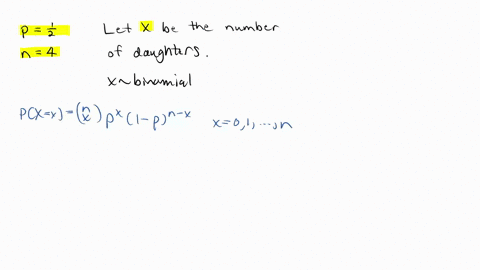 p = 1/2 Let x be the number
n = 4 of daughters.
x~binomial
P(X=x) = (n x) p^x (1-p)^{n-x} x=0,1,...,n